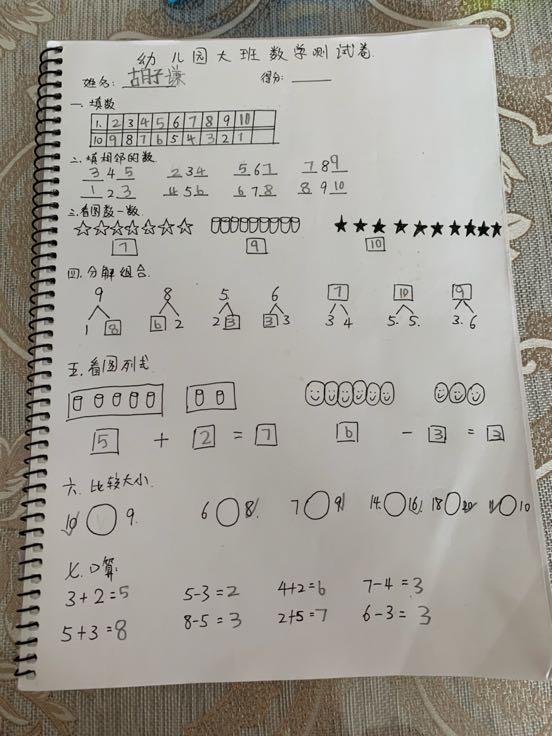 幼儿园大班数学测试卷.
姓名: 胡子谦 得分: ____
一.填数
1. 2 3 4 5 6 7 8 9 10
10 9 8 7 6 5 4 3 2 1
二.填相邻的数
3 4 5 2 3 4 5 6 7 7 8 9
1 2 3 4 5 6 6 7 8 8 9 10
三.看图数一数
7 9 10
四.分解组合.
9 8 5. 6 7 10 9
1 8 6 2 2 3 3 3 3 4 5. 5. 3. 6
五.看图列式
5 + 2 = 7 6 - 3 = 3
六.比较大小.
10 9. 6 8. 7 9 14. 16. 18 20 11 10
七.口算:
3+2=5 5-3=2 4+2=6 7-4=3
5+3=8 8-5=3 2+5=7 6-3=3